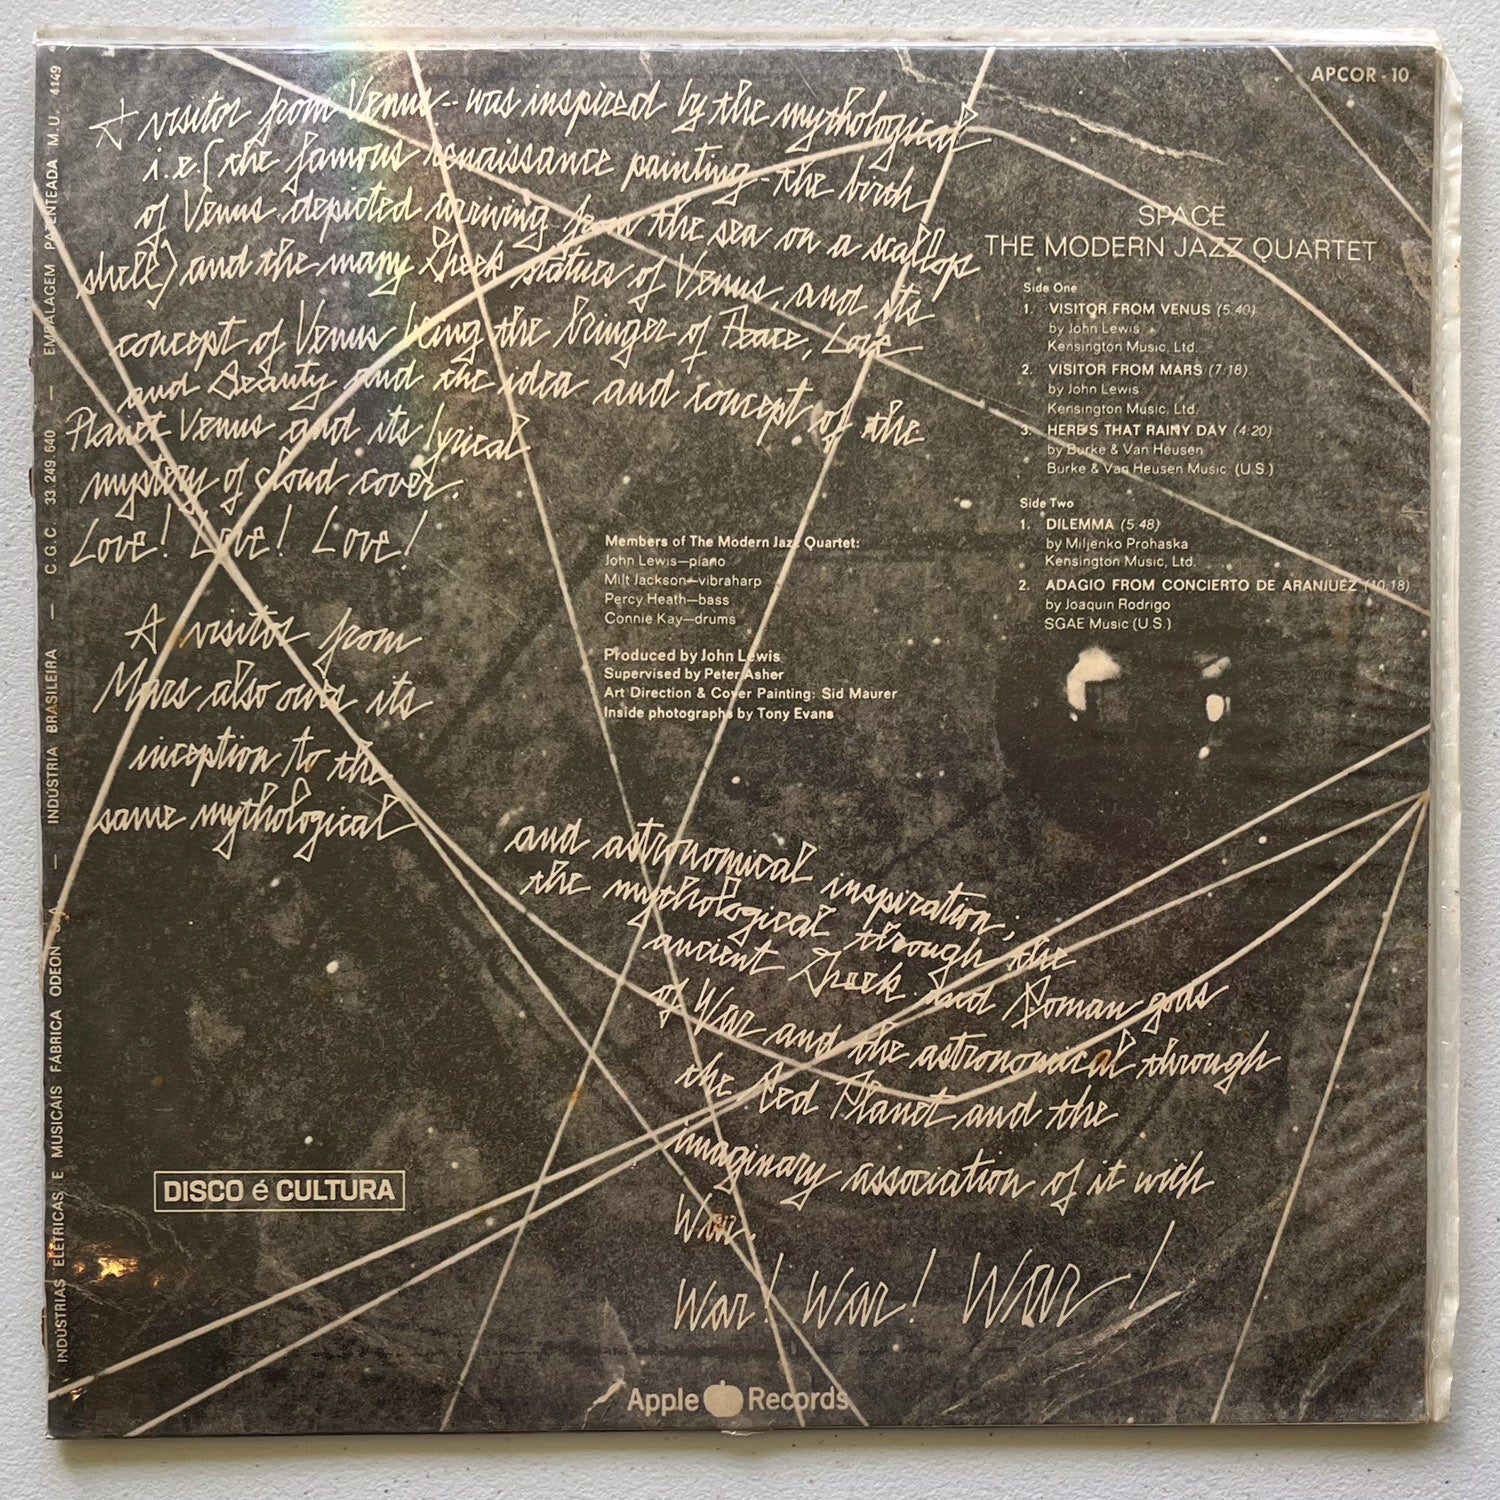 APCOR - 10
A visitor from Venus - was inspired by the mythological
i.e. (the famous renaissance painting - the birth
of Venus depicted arriving from the sea on a scallop
shell) and the many Greek statues of Venus, and its
concept of Venus being the bringer of Peace, Love
and Beauty and the idea and concept of the
Planet Venus and its lyrical
mystery of cloud cover.
Love! Love! Love!
A visitor from
Mars also owes its
inception to the
same mythological
and astronomical inspiration;
the mythological through the
ancient Greek and Roman gods
of War and the astronomical through
the Red Planet and the
imaginary association of it with
War.
War! War! War!
SPACE
THE MODERN JAZZ QUARTET
Side One
1. VISITOR FROM VENUS (5:40)
by John Lewis
Kensington Music, Ltd.
2. VISITOR FROM MARS (7:18)
by John Lewis
Kensington Music, Ltd.
3. HERE'S THAT RAINY DAY (4:20)
by Burke & Van Heusen
Burke & Van Heusen Music (U.S.)
Side Two
1. DILEMMA (5:48)
by Miljenko Prohaska
Kensington Music, Ltd.
2. ADAGIO FROM CONCIERTO DE ARANJUEZ (10:18)
by Joaquin Rodrigo
SGAE Music (U.S.)
Members of The Modern Jazz Quartet:
John Lewis—piano
Milt Jackson—vibraharp
Percy Heath—bass
Connie Kay—drums
Produced by John Lewis
Supervised by Peter Asher
Art Direction & Cover Painting: Sid Maurer
Inside photographs by Tony Evans
DISCO é CULTURA
Apple Records
INDÚSTRIAS ELÉTRICAS E MUSICAIS FÁBRICA ODEON S.A. — INDÚSTRIA BRASILEIRA — C.G.C. 33 249 640 — EMBALAGEM PATENTEADA M.U. 4149